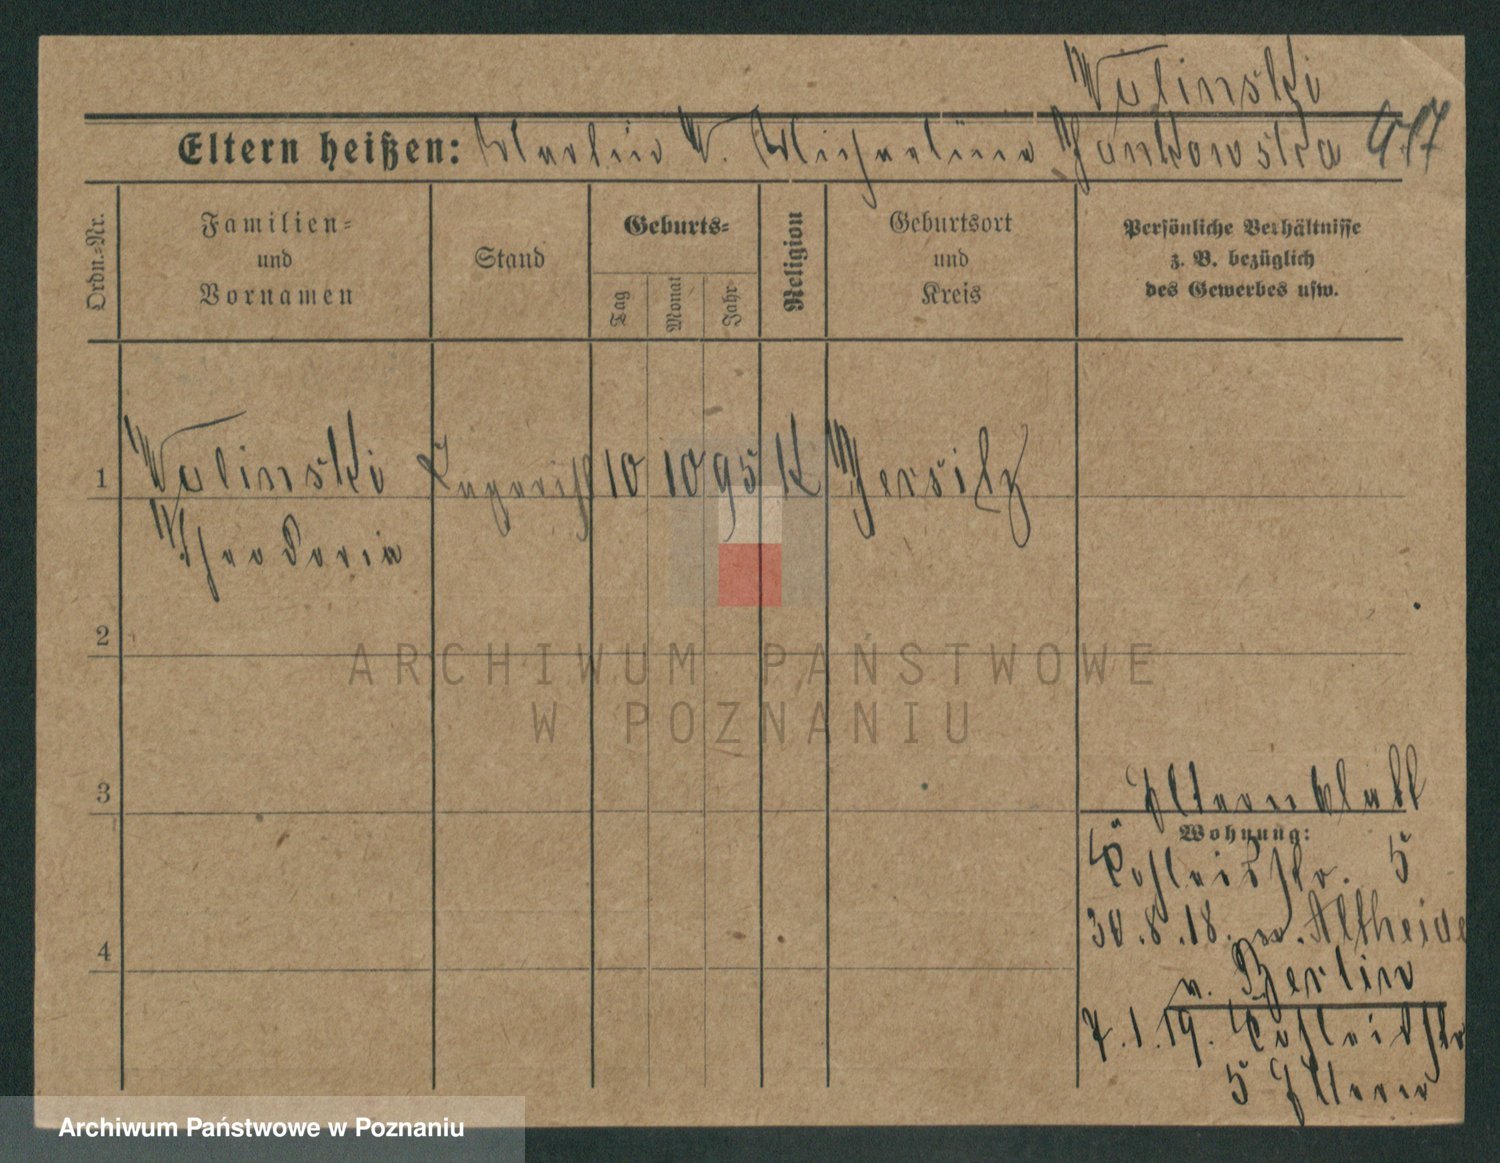 Wulinski
Eltern heißen: Martin W. Michaelina Jankowska 417
Ordn.-Nr.
Familien=
und
Vornamen
Stand
Geburts=
Tag
Monat
Jahr
Religion
Geburtsort
und
Kreis
Persönliche Verhältnisse
z. B. bezüglich
des Gewerbes usw.
1 Wulinski 10 10 95 K Jersitz
Theodoria
2
3
4
Elternblatt
Wohnung:
5
30.8.18. n. Altheide
n. Berlin
7.1.19.
5 Eltern
ARCHIWUM PAŃSTWOWE
W POZNANIU
Archiwum Państwowe w Poznaniu